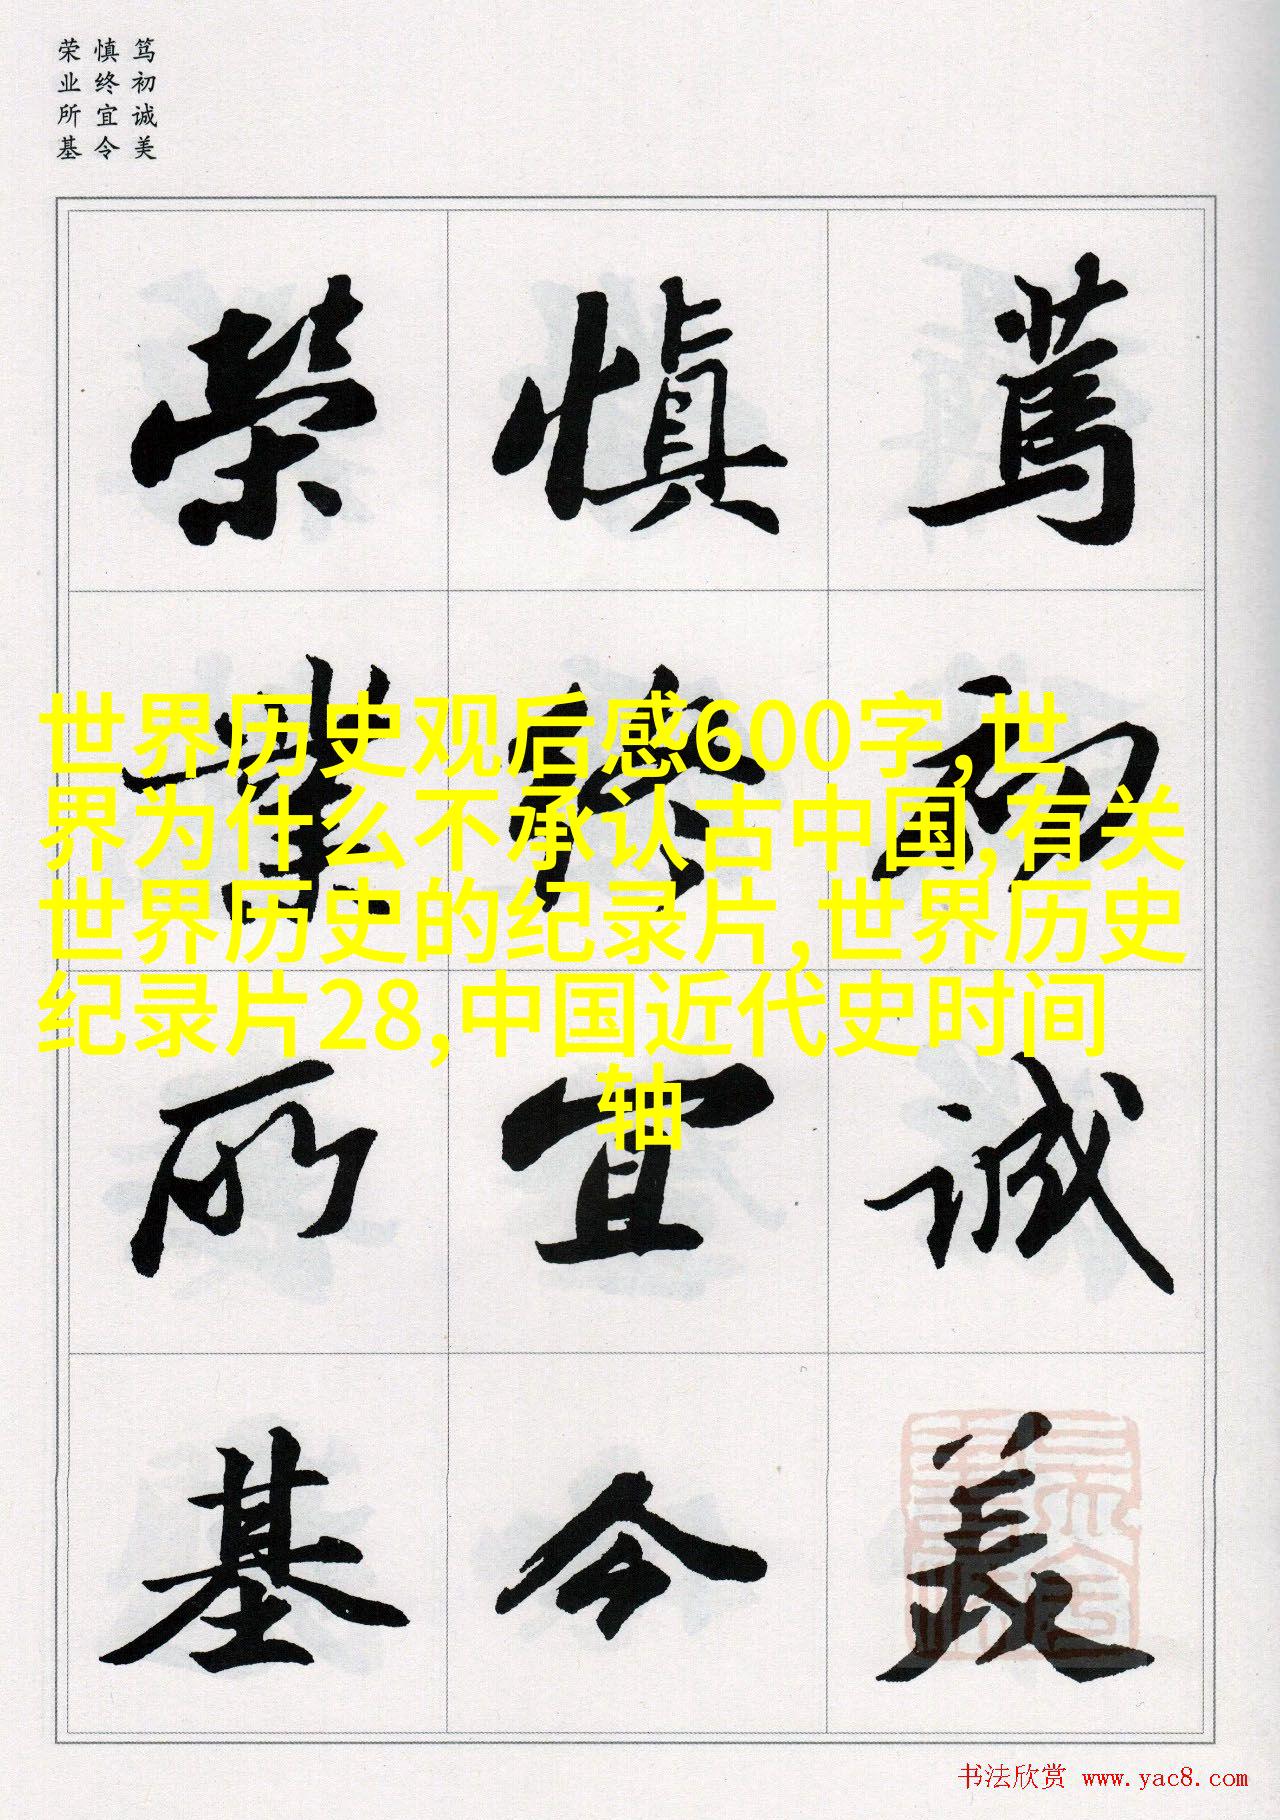 笃初诚美
慎终宜令
荣业所基
篤初诚美
慎终宜令
榮業所基
世界历史观后感600字,世
界为什么不承认古中国,有关
世界历史的纪录片,世界历史
纪录片28,中国近代史时间
轴
书法欣赏 www.yac8.com